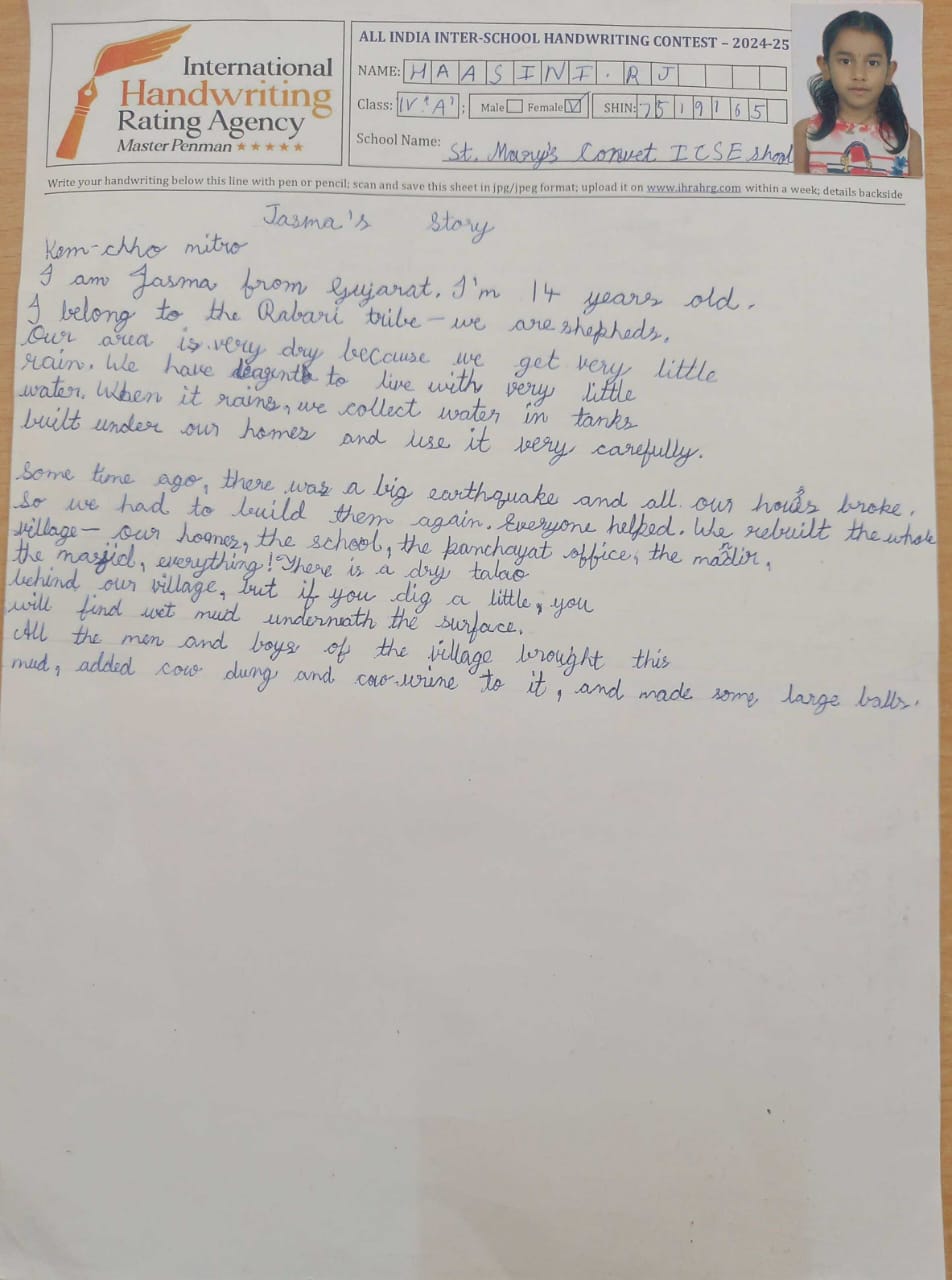 International
Handwriting
Rating Agency
Master Penman ★★★★★
ALL INDIA INTER-SCHOOL HANDWRITING CONTEST – 2024-25
NAME: HAASINI. RJ
Class: IV 'A' ; Male ☐ Female ☑ SHIN: 7519165
School Name: St. Mary's Convet ICSE shool
Write your handwriting below this line with pen or pencil; scan and save this sheet in jpg/jpeg format; upload it on www.ihrahrg.com within a week; details backside
Jasma's Story
Kem-chho mitro
I am Jasma from Gujarat. I'm 14 years old.
I belong to the Rabari tribe – we are shepheds.
Our area is very dry because we get very little
rain. We have to live with very little
water. When it rains, we collect water in tanks
built under our homes and use it very carefully.
Some time ago, there was a big earthquake and all our houses broke.
So we had to build them again. Everyone helped. We rebuilt the whole
village – our homes, the school, the panchayat office, the mandir,
the masjid, everything! There is a dry talao
behind our village, but if you dig a little, you
will find wet mud underneath the surface.
All the men and boys of the village brought this
mud, added cow dung and cow urine to it, and made some large balls.